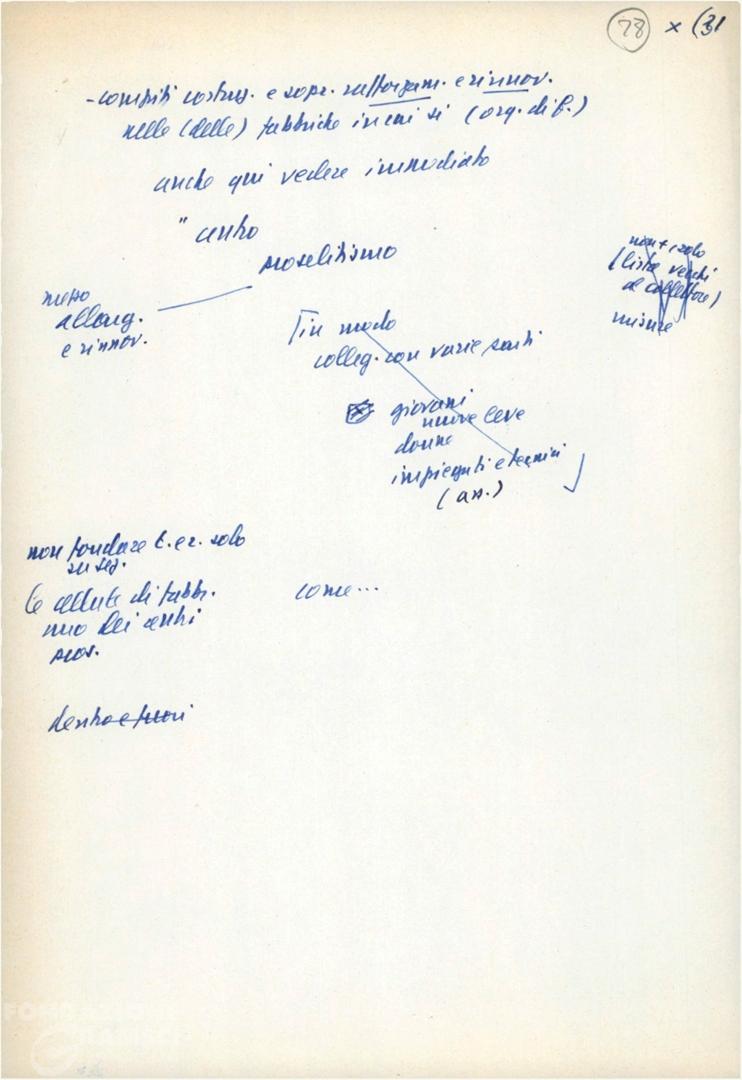 78 x (31
- compiti costruz. e sopr. rafforzam. e rinnov.
nelle (delle) fabbriche in cui si (org. di f.)
anche qui vedere immediato
" centro
proselitismo
non + solo
(lista vecchi
al collettore)
misure
messo
allarg.
e rinnov.
in modo
colleg. con varie parti
giovani
nuove leve
donne
impiegati e tecnici
(
non fondare t. es. solo
su sez.
le cellule di fabbr.
uno dei centri
pros.
come...
dentro e fuori
FONDAZIONE
GRAMSCI